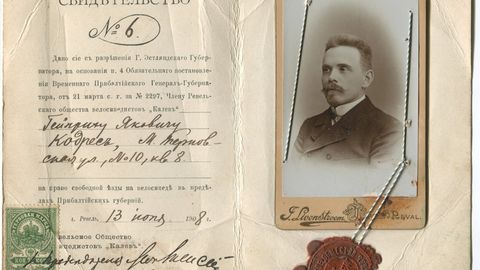 СВИДѢТЕЛЬСТВО
№ 6.
Дано сіе съ разрѣшенія Г. Эстляндскаго Губер-
натора, на основаніи п. 4 Обязательнаго постановле-
нія Временнаго Прибалтійскаго Генералъ-Губерна-
тора, отъ 21 марта с. г. за № 2297, Члену Ревель-
скаго общества велосипедистовъ „Калевъ“
Гейнриху Яковичу
Кодресъ,
ул, № 10, кв 8
на право свободной ѣзды на велосипедѣ въ предѣ-
лахъ Прибалтійскихъ губерній.
г. Ревель, 13 іюня 1908 г.
Ревельское Общество
велосипедистовъ „Калевъ“
J. Livenstroem
REVAL.